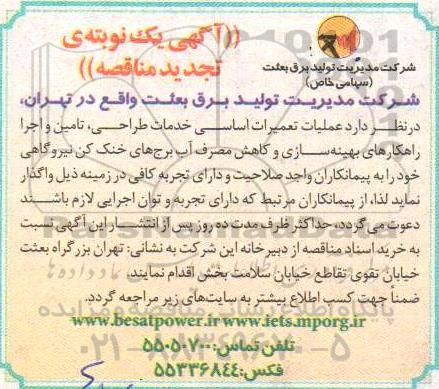 ((آگهی یک نوبته‌ی
تجدید مناقصه))
شرکت مدیریت تولید برق بعثت
(سهامی خاص)
شرکت مدیریت تولید برق بعثت واقع در تهران،
در نظر دارد عملیات تعمیرات اساسی خدمات طراحی، تامین و اجرا
راهکارهای بهینه‌سازی و کاهش مصرف آب برج‌های خنک کن نیروگاهی
خود را به پیمانکاران واجد صلاحیت و دارای تجربه کافی در زمینه ذیل واگذار
نماید لذا، از پیمانکاران مرتبط که دارای تجربه و توان اجرایی لازم باشند
دعوت می‌گردد، حداکثر ظرف مدت ده روز پس از انتشار این آگهی نسبت
به خرید اسناد مناقصه از دبیرخانه این شرکت به نشانی: تهران بزرگراه بعثت
خیابان تقوی تقاطع خیابان سلامت بخش اقدام نمایند.
ضمناً جهت کسب اطلاع بیشتر به سایت‌های زیر مراجعه گردد.
www.besatpower.ir www.iets.mporg.ir
تلفن تماس: ۵۵۰۵۰۷۰۰
فکس: ۵۵۳۳۶۸۴۴